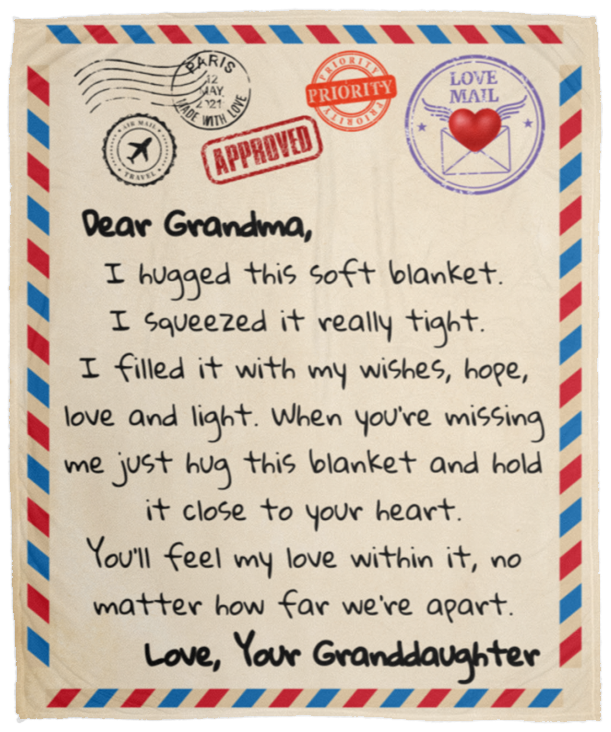 PARIS
12
MAY
2021
MADE WITH LOVE
PRIORITY
PRIORITY
PRIORITY
LOVE
MAIL
AIR MAIL
TRAVEL
APPROVED
Dear Grandma,
I hugged this soft blanket.
I squeezed it really tight.
I filled it with my wishes, hope,
love and light. When you're missing
me just hug this blanket and hold
it close to your heart.
You'll feel my love within it, no
matter how far we're apart.
Love, Your Granddaughter